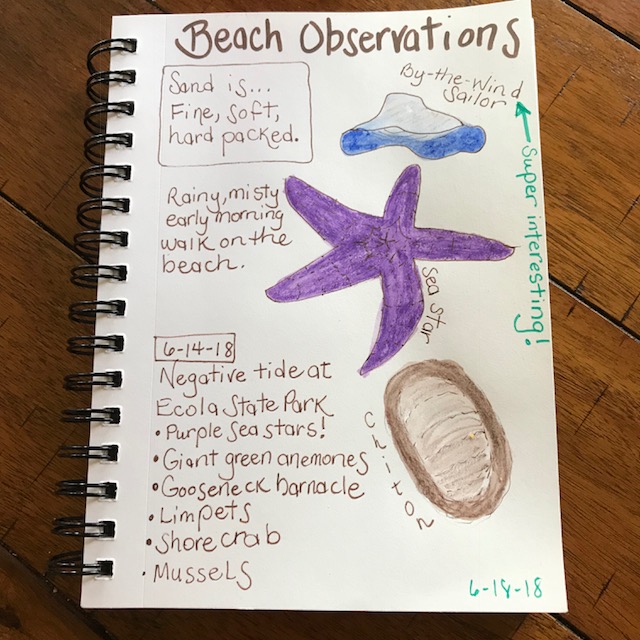 Beach Observations
Sand is...
Fine, soft,
hard packed.
By-the-Wind
Sailor
Super interesting!
Rainy, misty
early morning
walk on the
beach.
Sea Star
6-14-18
Negative tide at
Ecola State Park
• Purple sea stars!
• Giant green anemones
• Gooseneck barnacle
• Limpets
• Shore crab
• Mussels
Chiton
6-18-18